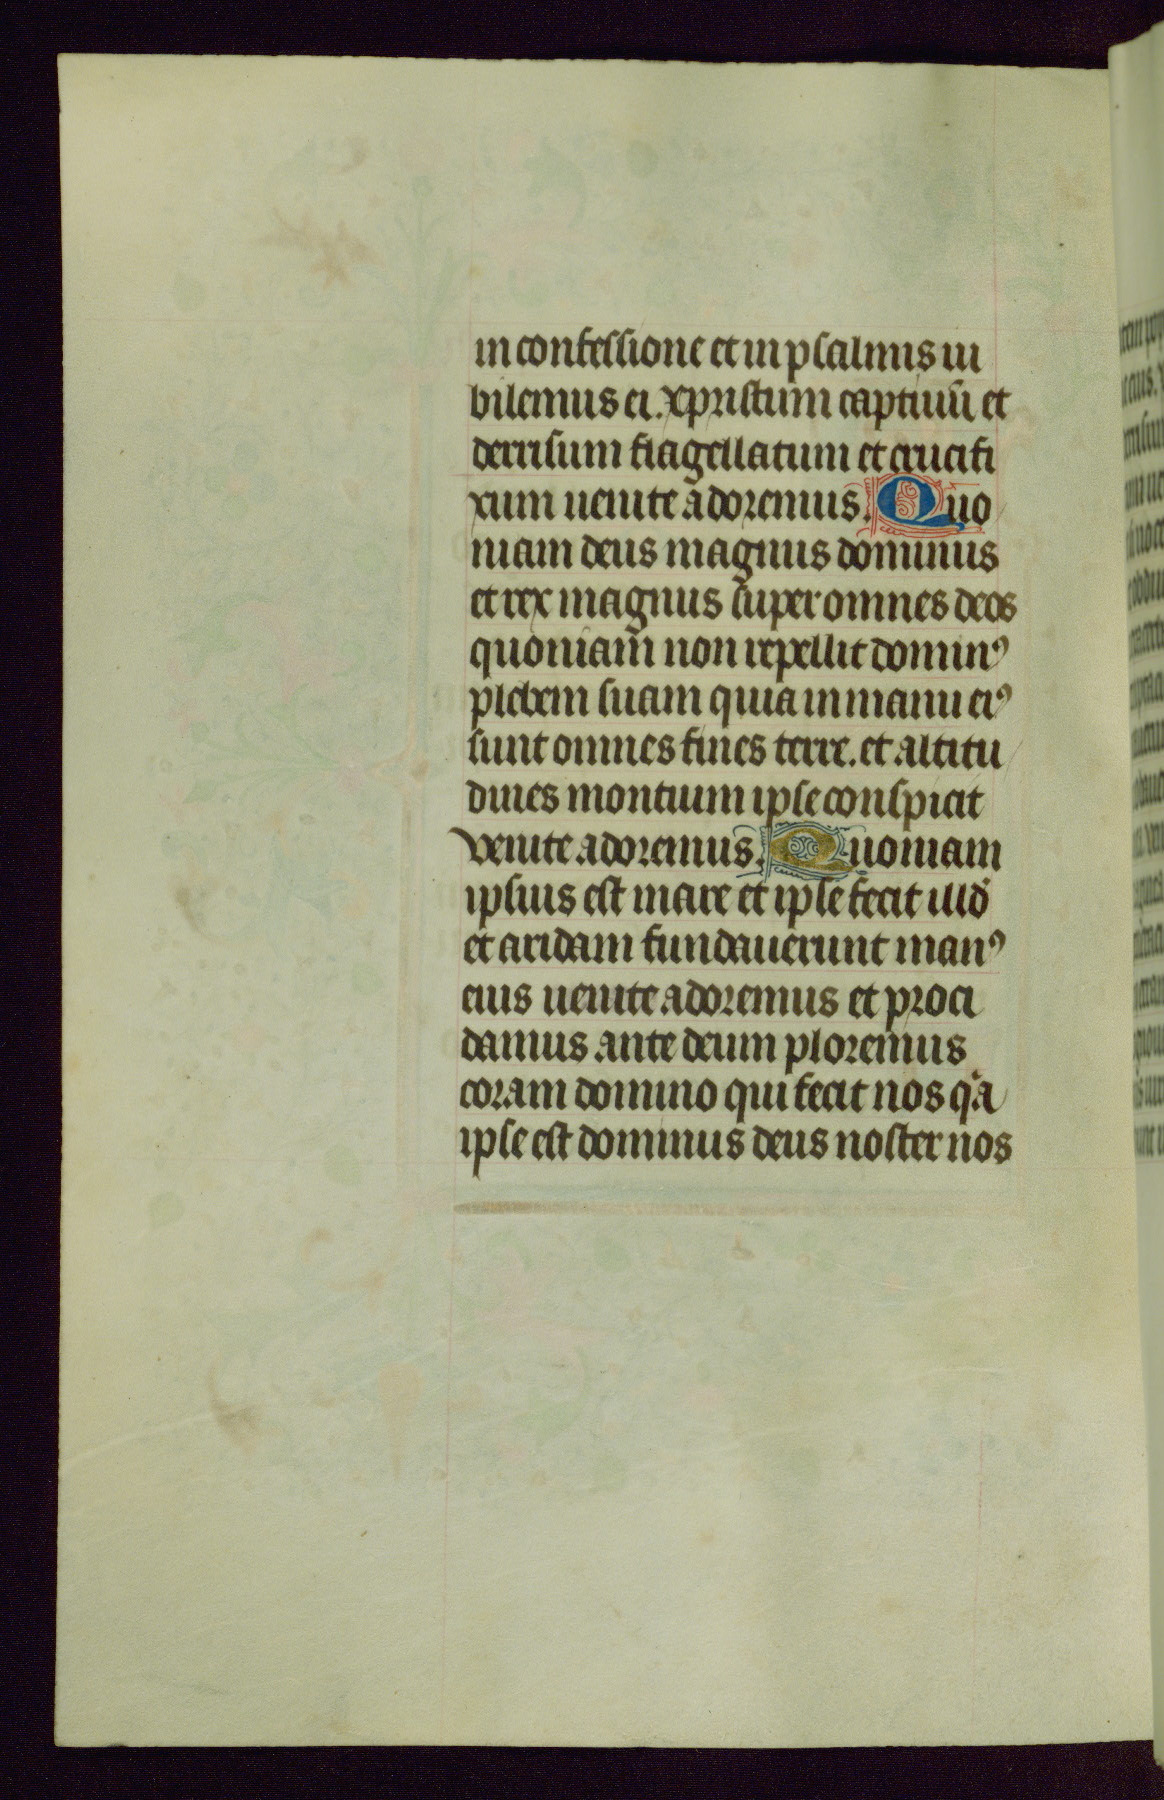 in confessione et in psalmis iu
bilemus ei. xpristum captiuū et
derrisum flagellatum et crucifi
xum uenite adoremus. Quo
niam deus magnus dominus
et rex magnus super omnes deos
quoniam non repellit domin⁹
plebem suam quia in manu ei⁹
sunt omnes fines terre. et altitu
dines montium ipse conspicit
venite adoremus. Quoniam
ipsius est mare et ipse fecit illd̄
et aridam fundauerunt man⁹
eius uenite adoremus et proci
damus ante deum ploremus
coram domino qui fecit nos qͥa
ipse est dominus deus noster nos